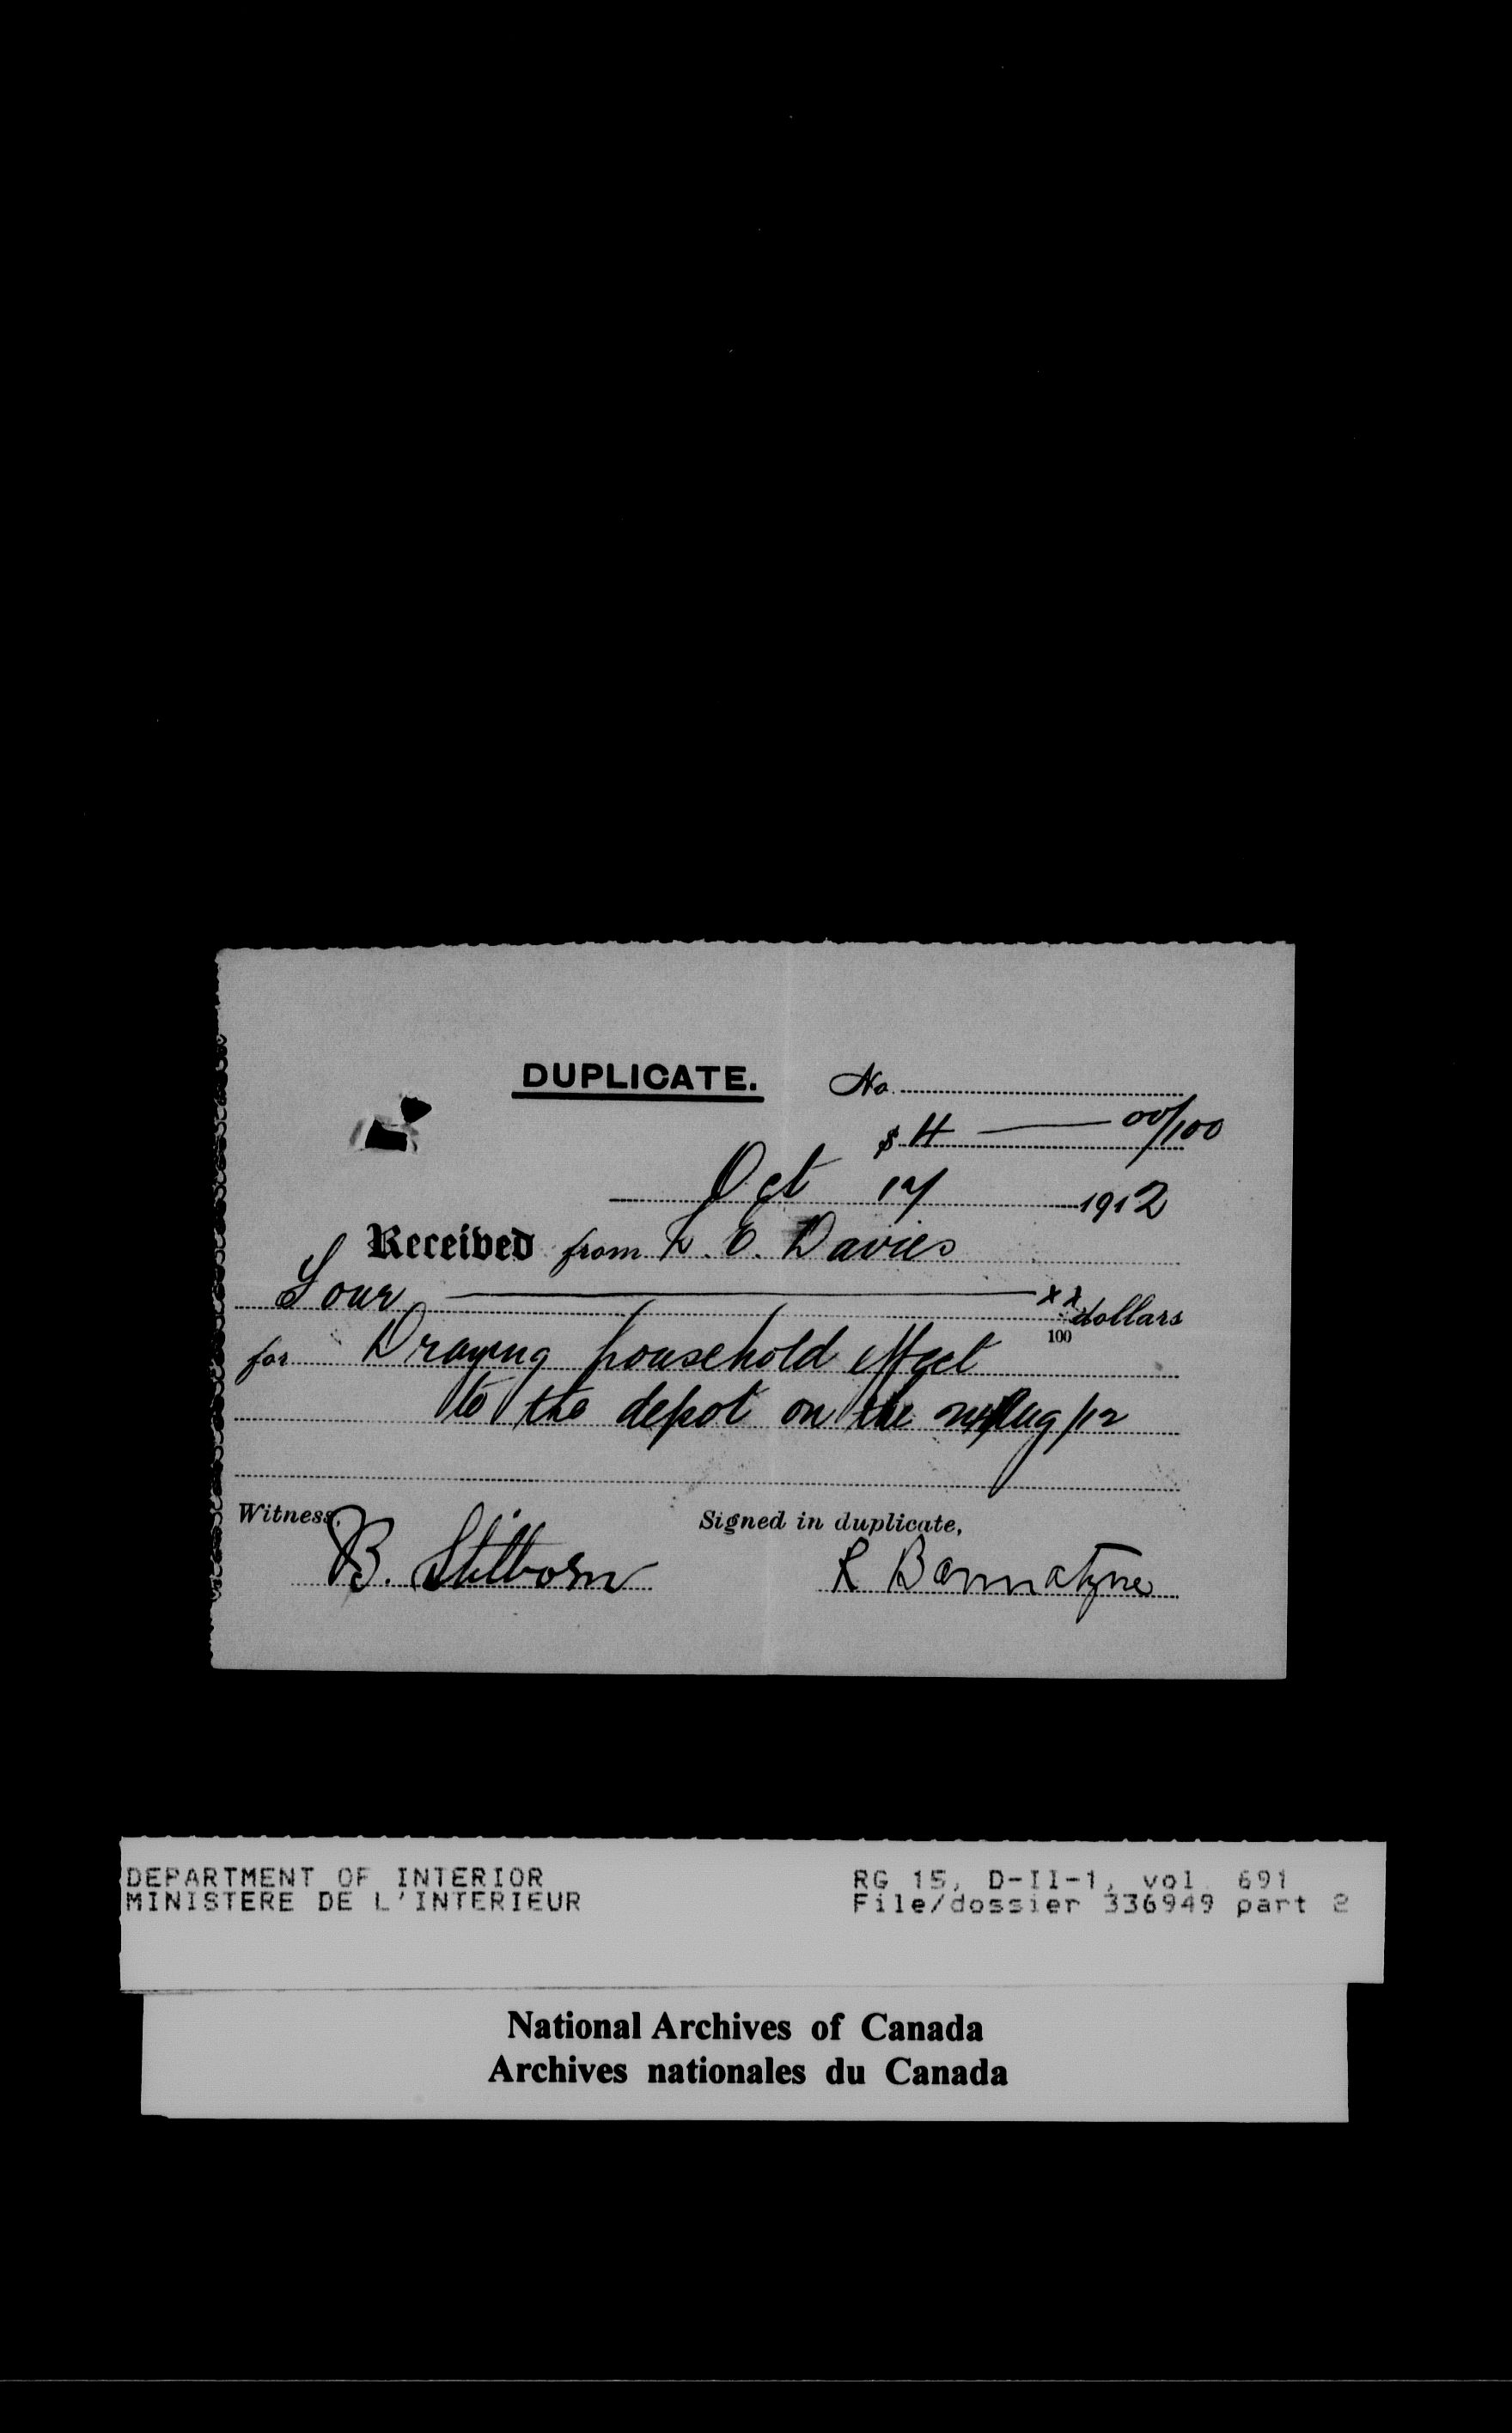 DUPLICATE. No.
$ 4 — 00/100
Oct 17 1912
Received from L. E. Davies
Four — xx/100 dollars
for Draying household effect
to the depot on the Aug/12
Witness,
Signed in duplicate,
B. Stilborn
R Bannatyne
DEPARTMENT OF INTERIOR
MINISTERE DE L'INTERIEUR
RG 15, D-II-1, vol. 691
File/dossier 336949 part 2
National Archives of Canada
Archives nationales du Canada